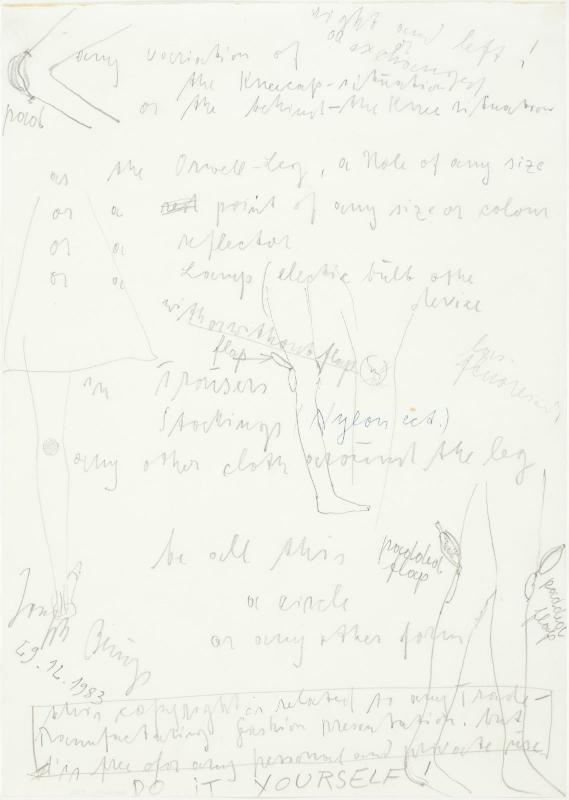 right and left!
or exchanged
any variation of
the Kneecap-situation
or the behind-the Knee situation
pad
as the Orwell-Leg, a Hole of any size
or a point of any size or colour
or a reflector
or a Lamp (electric bulb othe
device
with or without flap
flap
in Trousers
Stockings (Nylon ect.)
any other cloth around the leg
be all this
a circle
or any other form
padded
flap
padded
flap
Joseph Beuys
29.12.1983
this copyright is related to any Trade-
Manufacturing fashion presentation. but
is free for any personal and private use.
DO IT YOURSELF!